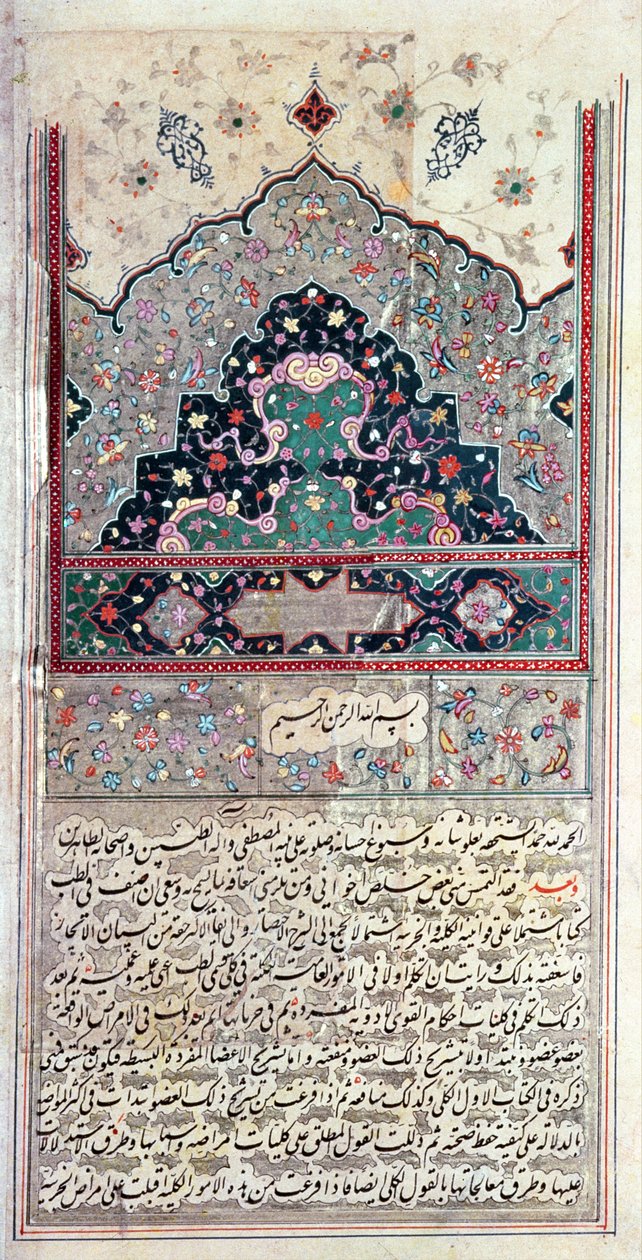 بسم الله الرحمن الرحيم
الحمد لله حمدا يستحقه بعلو شانه وسبوغ احسانه وصلوته على نبيه المصطفى واله الطيبين واصحابه الطاهرين
وبعد فقد التمس منى بعض خلص اخوانى ومن يلزمنى اسعافه بما يسمح به وسعى ان اصنف فى الطب
كتابا مشتملا على قوانينه الكلية والجزئية اشتمالا يجمع الى الشرح الاختصار والى ايفاء الاكثر حقه من البيان الايجاز
فاسعفته بذلك ورايت ان اتكلم اولا فى الامور العامة الكلية فى كلى قسمى الطب اعنى وعمليه ثم بعد
ذلك اتكلم فى كليات احكام القوى الادوية المفردة ثم فى جزئياتها ثم بعد ذلك فى الامراض الواقعة
بعضو عضو وابتدء اولا بتشريح ذلك العضو ومنفعته واما تشريح الاعضا المفردة البسيطة فيكون قد سبق منى
ذكره فى الكتاب الاول الكلى وكذلك منافعه ثم اذا فرغت من تشريح ذلك العضو ابتدات فى اكثر المواضع
بالدلالة على كيفية حفظ صحته ثم دللت القول المطلق على كليات امراضه واسبابها وطرق الاستدلالات
عليها وطرق معالجاتها بالقول الكلى ايضا فاذا فرغت من هذه الامور الكلية اقبلت على امراض الجزئية